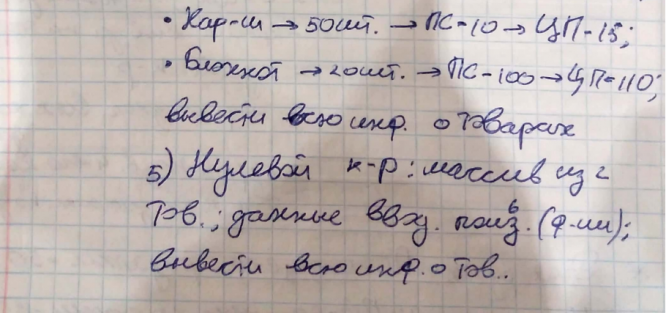 • Кар-ш → 50шт. → ПС-10 → ЦП-15;
• Блокнот → 20шт. → ПС-100 → ЦП-110;
вывести всю инф. о товарах
5) Нулевой к-р: массив из 2
тов.; данные ввод. польз. (ф-ии);
вывести всю инф. о тов..